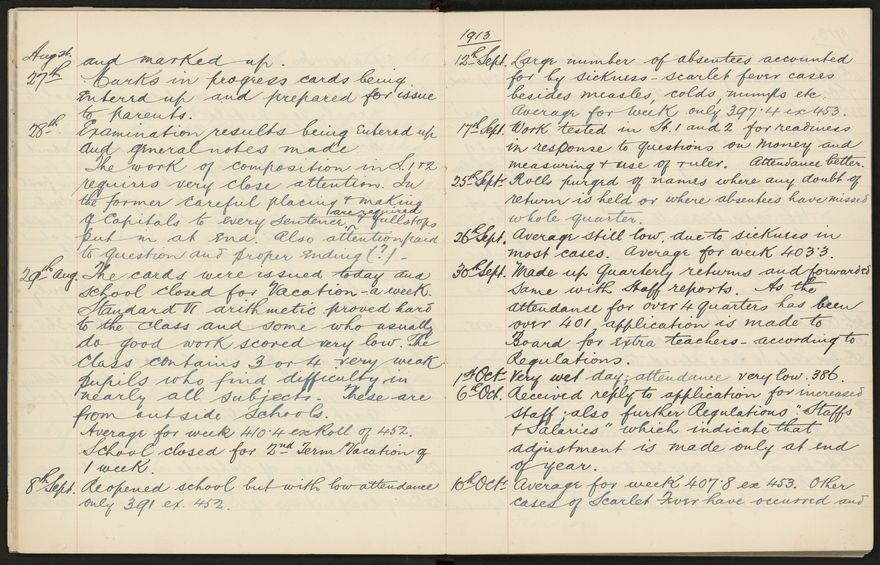 Aug 26. and marked up.
27th Marks in progress cards being
entered up and prepared for issue
to parents.
28th Examination results being entered up
and general notes made
The work of composition in S. 1 & 2
requires very close attention. In
the former careful placing & making
of Capitals to every sentence, are required & fullstops
put in at end. Also attention paid
to question and proper ending (?) -
29th Aug. The cards were issued today and
school closed for Vacation - a week.
Standard VI arithmetic proved hard
to the class and some who usually
do good work scored very low. The
class contains 3 or 4 very weak
pupils who find difficulty in
nearly all subjects. These are
from outside schools.
Average for week 410.4 ex Roll of 452.
School closed for 2nd Term Vacation of
1 week.
8th Sept. Reopened school but with low attendance
only 391 ex. 452.
1913
12th Sept. Large number of absentees accounted
for by sickness - scarlet fever cases
besides measles, colds, mumps etc
Average for week only 397.4 ex 453.
17th Sept. Work tested in St. 1 and 2 for readiness
in response to questions on money and
measuring & use of ruler. Attendance better.
25th Sept. Rolls purged of names where any doubt of
return is held or where absentees have missed
whole quarter.
26th Sept. Average still low, due to sickness in
most cases. Average for week 403.3.
30th Sept. Made up Quarterly returns and forwarded
same with Staff reports. As the
attendance for over 4 quarters has been
over 401, application is made to
Board for extra teachers - according to
Regulations.
1st Oct. Very wet day; attendance very low. 386.
6th Oct. Received reply to application for increased
staff; also further Regulations "Staffs
& Salaries" which indicate that
adjustment is made only at end
of year.
10th Oct. Average for week 407.8 ex 453. Other
cases of Scarlet Fever have occurred and